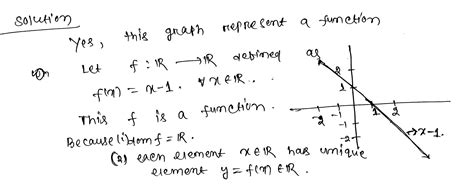 Solution
Yes, this graph represent a function
Let f : ℝ → ℝ defined
as
f(x) = x-1. ∀ x ∈ ℝ.
This f is a function.
Because (i) Dom f = ℝ.
(2) each element x ∈ ℝ has unique
element y = f(x) ∈ ℝ.
2
1
-2 -1 1 2
-1
-2
→ x-1.